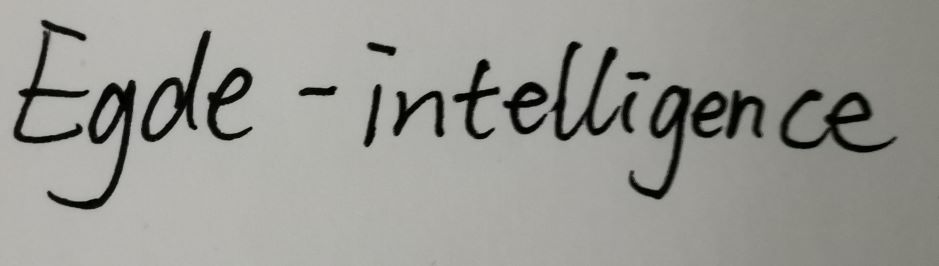 Egde - intelligence